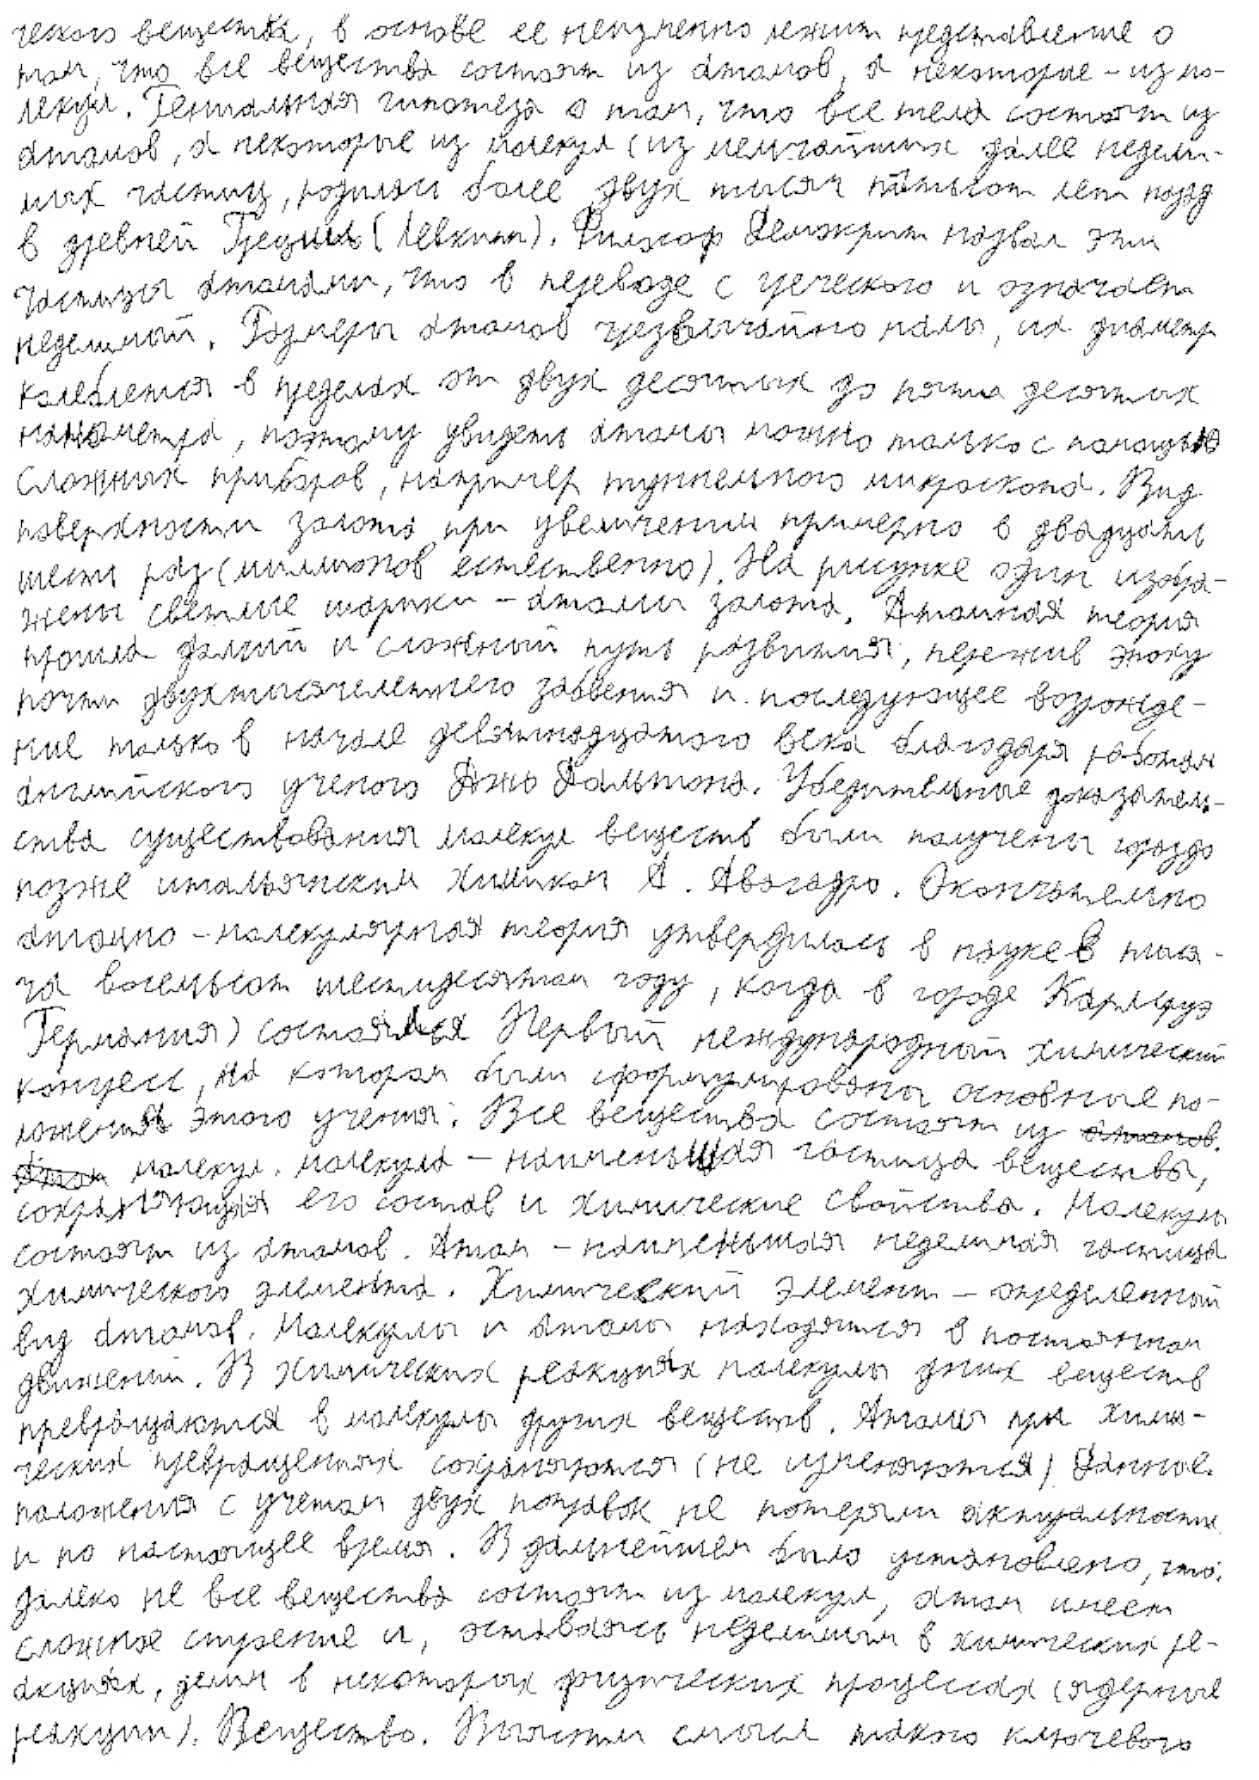 ческого вещества, в основе ее неизменно лежит представление о
том, что все вещества состоят из атомов, а некоторые - из мо-
лекул. Гениальная гипотеза о том, что все тела состоят из
атомов, а некоторые из молекул (из мельчайших далее недели-
мых частиц, родилась более двух тысяч пятьсот лет назад
в древней Греции (Левкипп). Философ Демокрит назвал эти
частицы атомами, что в переводе с греческого и означает
неделимый. Размеры атомов чрезвычайно малы, их диаметр
колеблется в пределах от двух десятых до пяти десятых
нанометра, поэтому увидеть атомы можно только с помощью
сложных приборов, например туннельного микроскопа. Вид
поверхности золота при увеличении примерно в двадцать
шесть раз (миллионов естественно). На рисунке один изобра-
жены светлые шарики - атомы золота. Атомная теория
прошла долгий и сложный путь развития, пережив эпоху
почти двухтысячелетнего забвения и последующее возрожде-
ние только в начале девятнадцатого века благодаря работам
английского ученого Джо Дальтона. Убедительные доказатель-
ства существования молекул веществ были получены гораздо
позже итальянским химиком А. Авогадро. Окончательно
атомно - молекулярная теория утвердилась в науке в тыся-
ча восемьсот шестидесятом году, когда в городе Карлсруэ
Германия) состоялся Первый международный химический
конгресс, на котором были сформулированы основные по-
ложения этого учения: Все вещества состоят из атомов.
Атом молекул. Молекула - наименьшая частица вещества,
сохраняющая его состав и химические свойства. Молекулы
состоят из атомов. Атом - наименьшая неделимая частица
химического элемента. Химический элемент - определенный
вид атомов. Молекулы и атомы находятся в постоянном
движении. В химических реакциях молекулы одних веществ
превращаются в молекулы других веществ. Атомы при хими-
ческих превращениях сохраняются (не изменяются) Данные
положения с учетом двух поправок не потеряли актуальности
и по настоящее время. В дальнейшем было установлено, что.
далеко не все вещества состоят из молекул, атом имеет
сложное строение и, оставаясь неделимым в химических ре-
акциях, делим в некоторых физических процессах (ядерные
реакции). Вещество. Выясним смысл такого ключевого